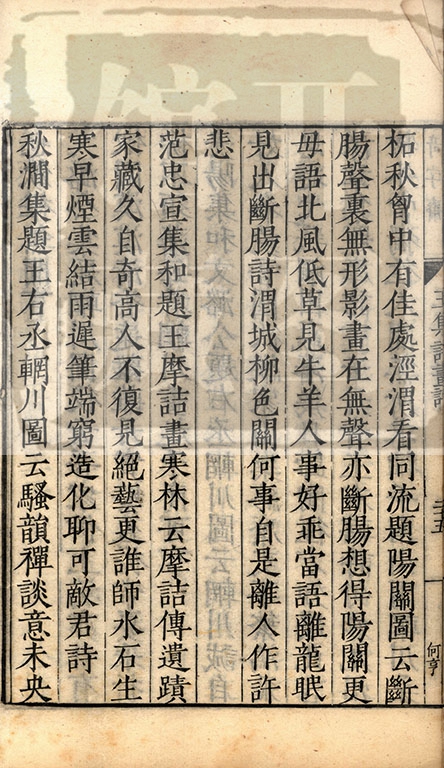 柘秋曾中有佳處涇渭看同流題陽關圖云斷
腸聲裏無形影畫在無聲亦斷腸想得陽關更
毋語北風低草見牛羊人事好乖當語離龍眠
見出斷腸詩渭城柳色關何事自是離人作許
悲
范忠宣集和題王摩詰畫寒林云摩詰傳遺蹟
家藏久自奇高人不復見絕藝更誰師水石生
寒早煙雲結雨遲筆端窮造化聊可敵君詩
秋澗集題王右丞輞川圖云騷韻禪談意未央
何亨